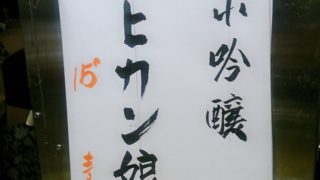 吟醸
ヒカン娘
15